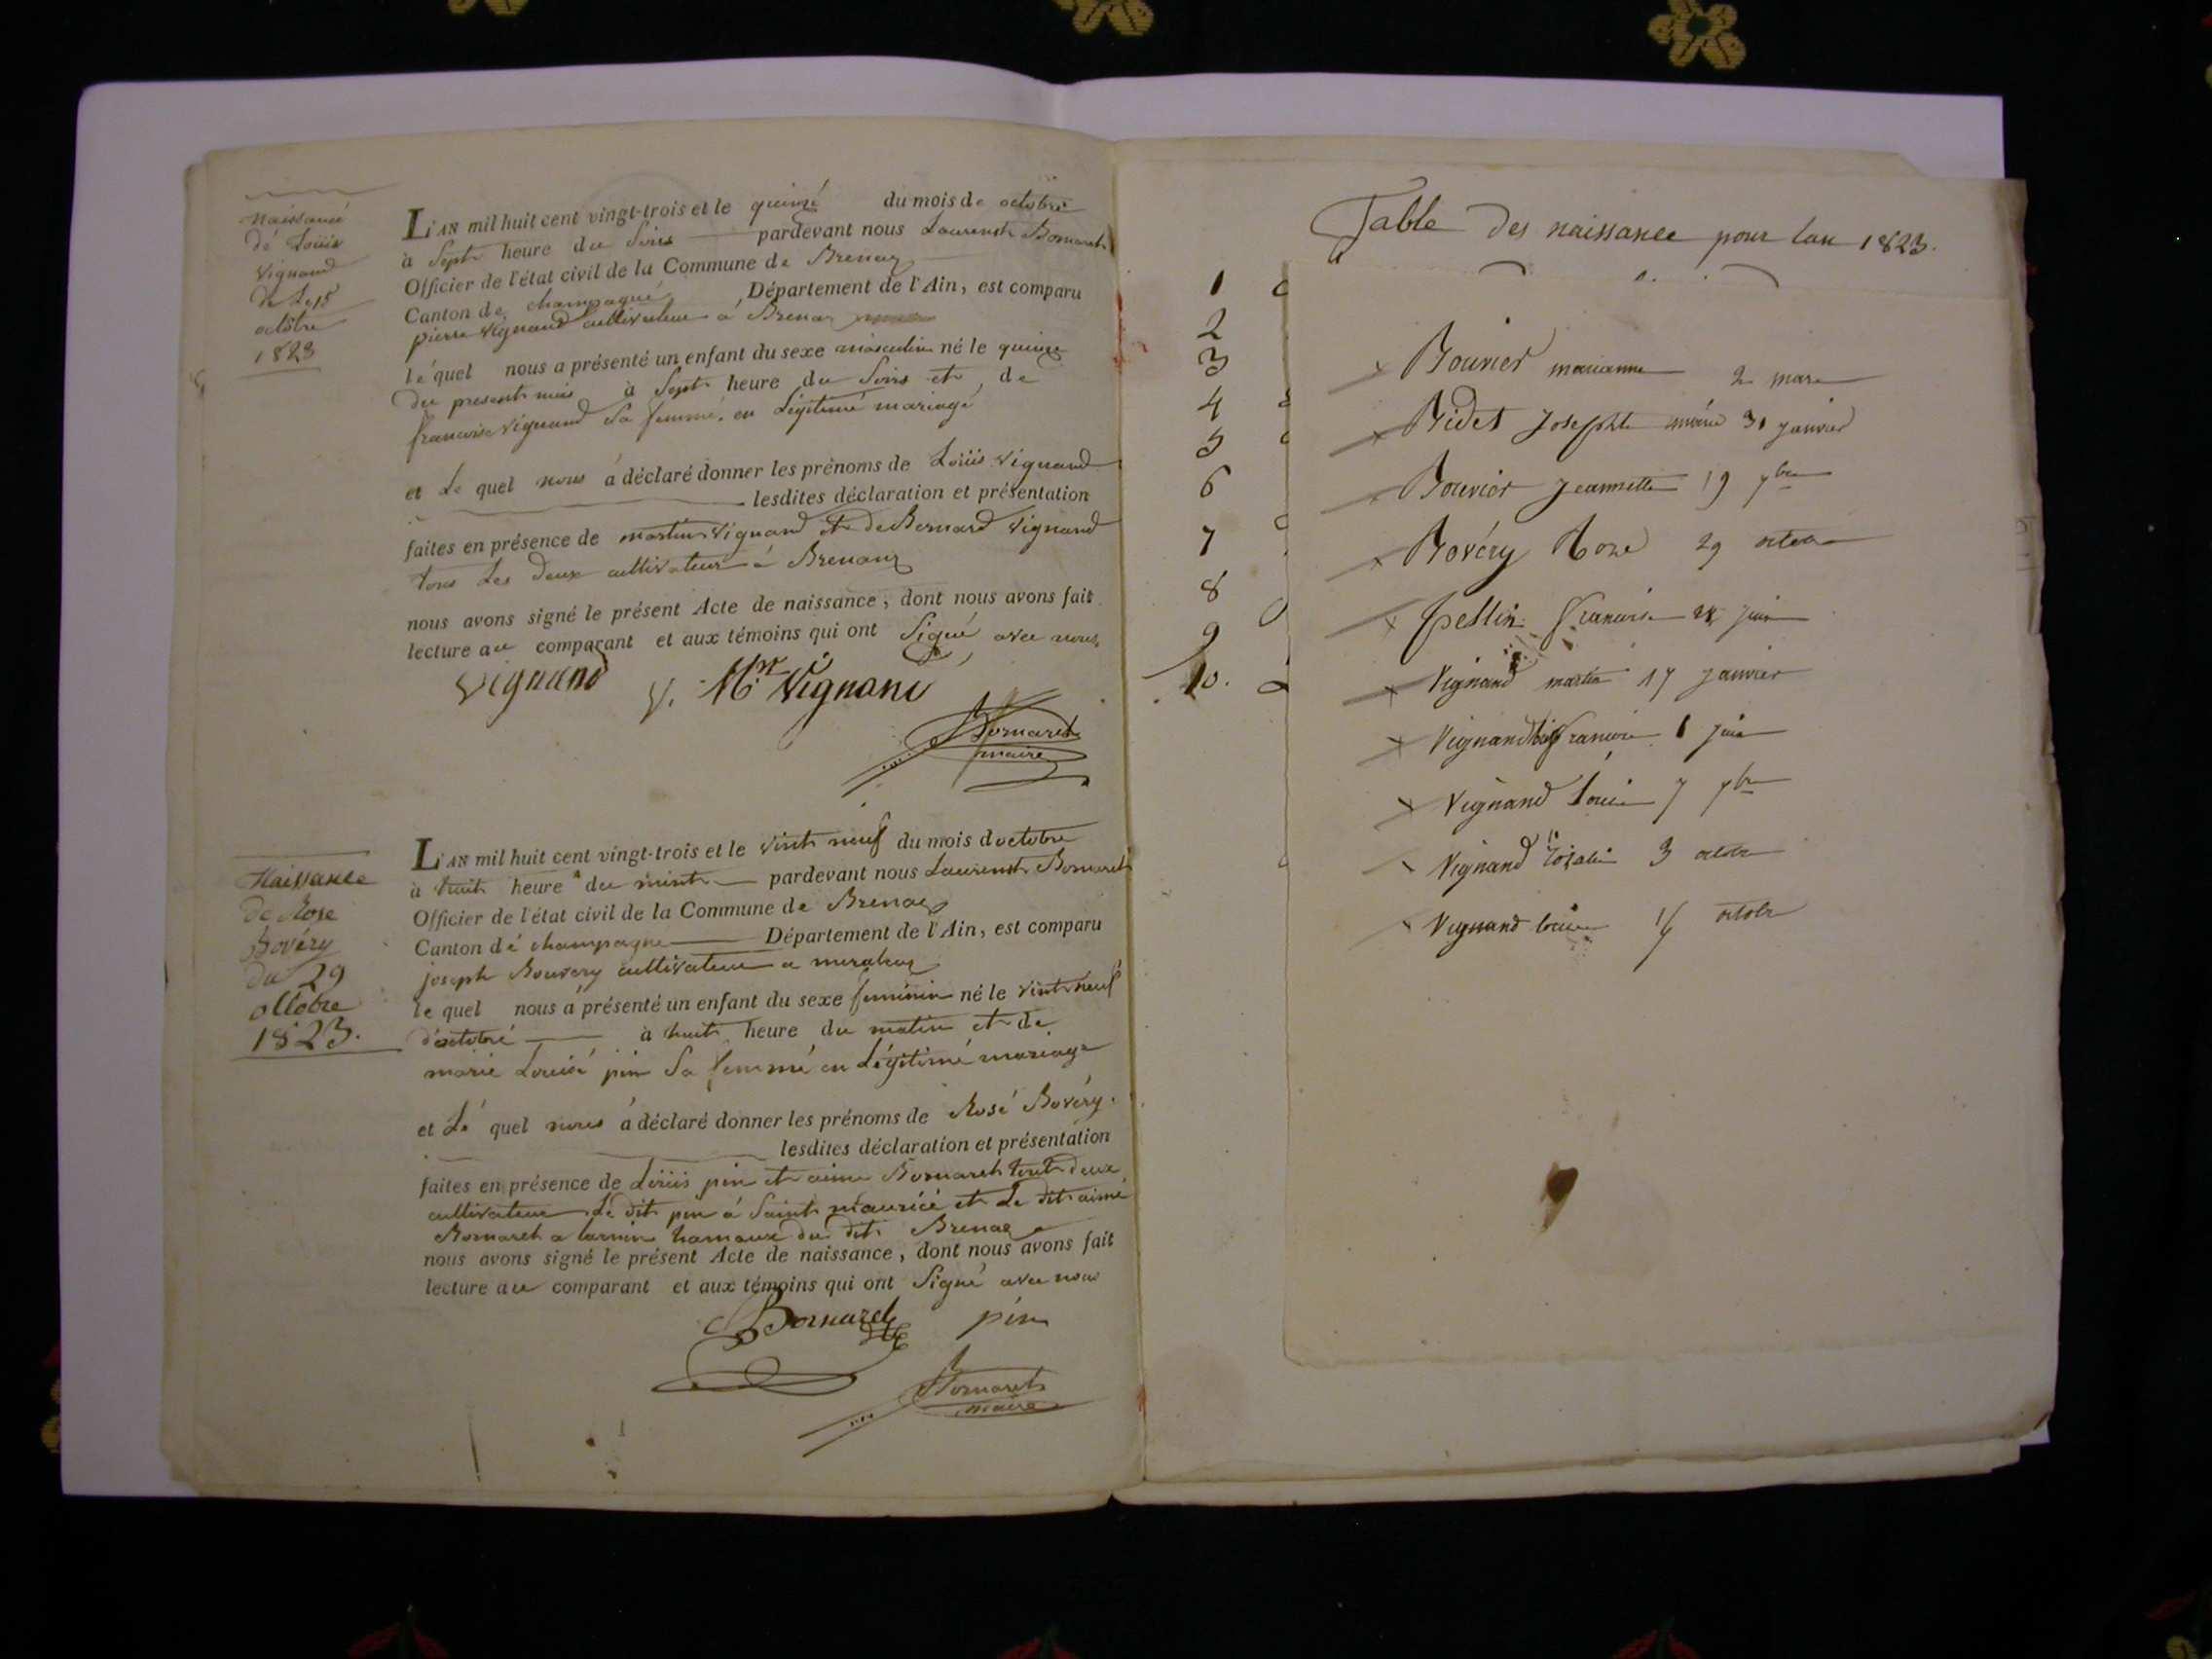 Naissance
de Loüis
Vignand
du Le 15
octobre
1823
L'AN mil huit cent vingt-trois et le quinzé du mois de octobre
à Sept heure du Soirs pardevant nous Laurent Bornaret
Officier de l'état civil de la Commune de Brenaz
Canton de champagne Département de l'Ain, est comparu
pierre Vignand cultivateur a Brenaz
le quel nous a présenté un enfant du sexe masculin né le quinze
du present mois à Sept heure du Soirs et de
francoise Vignand Sa femme en Légitimé mariagé
et Le quel nous a déclaré donner les prénoms de Loüis Vignand
lesdites déclaration et présentation
faites en présence de martin Vignand et de Bernard Vignand
tous Les deux cultivateur à Brenaz
nous avons signé le présent Acte de naissance, dont nous avons fait
lecture au comparant et aux témoins qui ont Signé avec nous
Vignand V. Vignand
Bornaret
maire
Naissance
de Rose
Bovéry
du 29
octobre
1823.
L'AN mil huit cent vingt-trois et le vint neuf du mois doctobre
à huit heure du pardevant nous Laurent Bornaret
Officier de l'état civil de la Commune de Brenaz
Canton dé champagne Département de l'Ain, est comparu
joseph Bouvery cultivateur a
le quel nous a présenté un enfant du sexe feminin né le vint neuf
d'octobré à huit heure du matin et de
marie Louisé pin Sa femmé en Légitimé mariage
et Lé quel nous a déclaré donner les prénoms de Rosé Bovéry.
lesdites déclaration et présentation
faites en présence de Loüis pin et aime Bornaret tout deux
cultivateur Le dit pin á Saint mauricé et Le dit aimé
Bornaret a hamaux du dit Brenaz
nous avons signé le présent Acte de naissance, dont nous avons fait
lecture au comparant et aux témoins qui ont Signé avec nous
Bornaret pin
Bornaret
maire
Table des naissance pour lan 1823.
1
2
3
4
5
6
7
8
9
10.
Bouvier marianne 2 mars
Bidet Josephte marie 31 janvier
Bouvier Jeannette 19 7bre
Bovéry Roze 29 octobre
francoise juin
Vignand martin 17 janvier
Vignand francoise 1 juin
Vignand Louise 7 7bre
Vignand rosalie 3 octobre
Vignand octobre